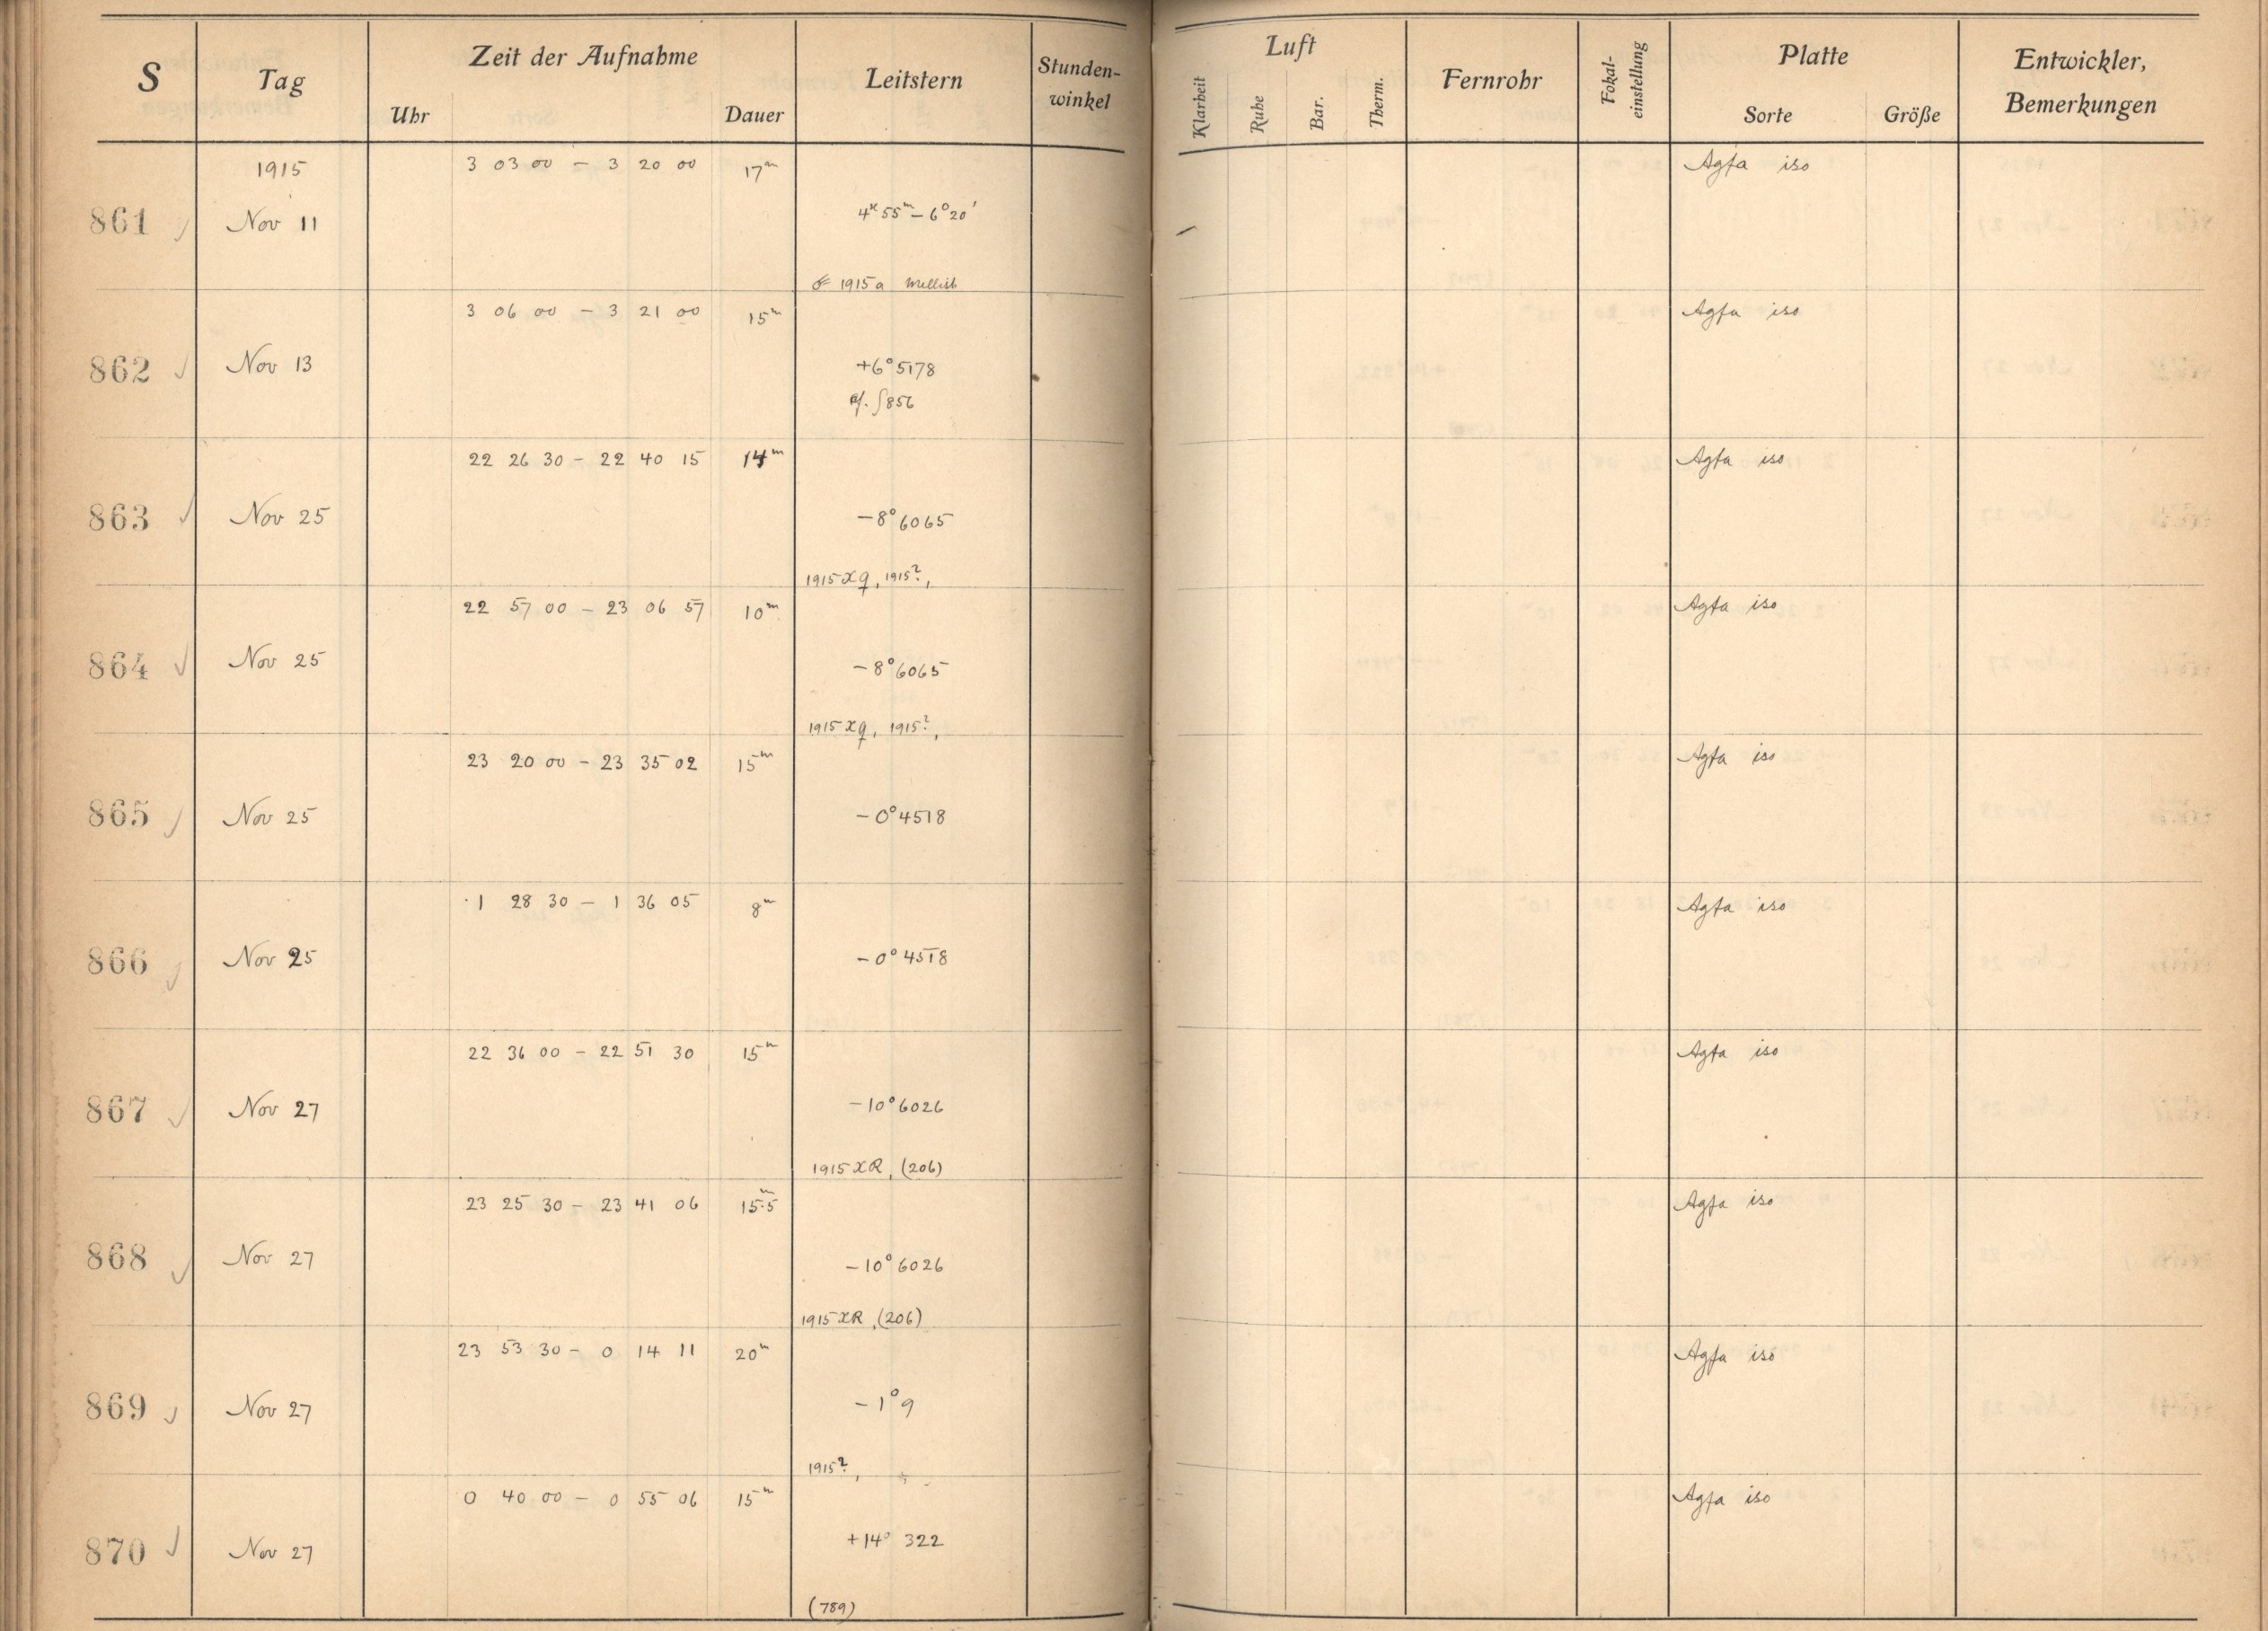 S Tag Zeit der Aufnahme Leitstern Stunden-winkel Luft Fernrohr Fokal-einstellung Platte Entwickler, Bemerkungen
Uhr Dauer Klarheit Ruhe Bar. Therm. Sorte Größe
1915 3 03 00 – 3 20 00 17m Agfa iso
861 Nov 11 4h 55m – 6° 20'
1915a Mellish
3 06 00 – 3 21 00 15m Agfa iso
862 Nov 13 +6° 5178
cf. S 856
22 26 30 – 22 40 15 14m Agfa iso
863 Nov 25 –8° 6065
1915 XQ, 1915?,
22 57 00 – 23 06 57 10m Agfa iso
864 Nov 25 –8° 6065
1915 XQ, 1915?,
23 20 00 – 23 35 02 15m Agfa iso
865 Nov 25 –0° 4518
1 28 30 – 1 36 05 8m Agfa iso
866 Nov 25 –0° 4518
22 36 00 – 22 51 30 15m Agfa iso
867 Nov 27 –10° 6026
1915 XR, (206)
23 25 30 – 23 41 06 15m.5 Agfa iso
868 Nov 27 –10° 6026
1915 XR, (206)
23 53 30 – 0 14 11 20m Agfa iso
869 Nov 27 –1° 9
1915?,
0 40 00 – 0 55 06 15m Agfa iso
870 Nov 27 +14° 322
(789)